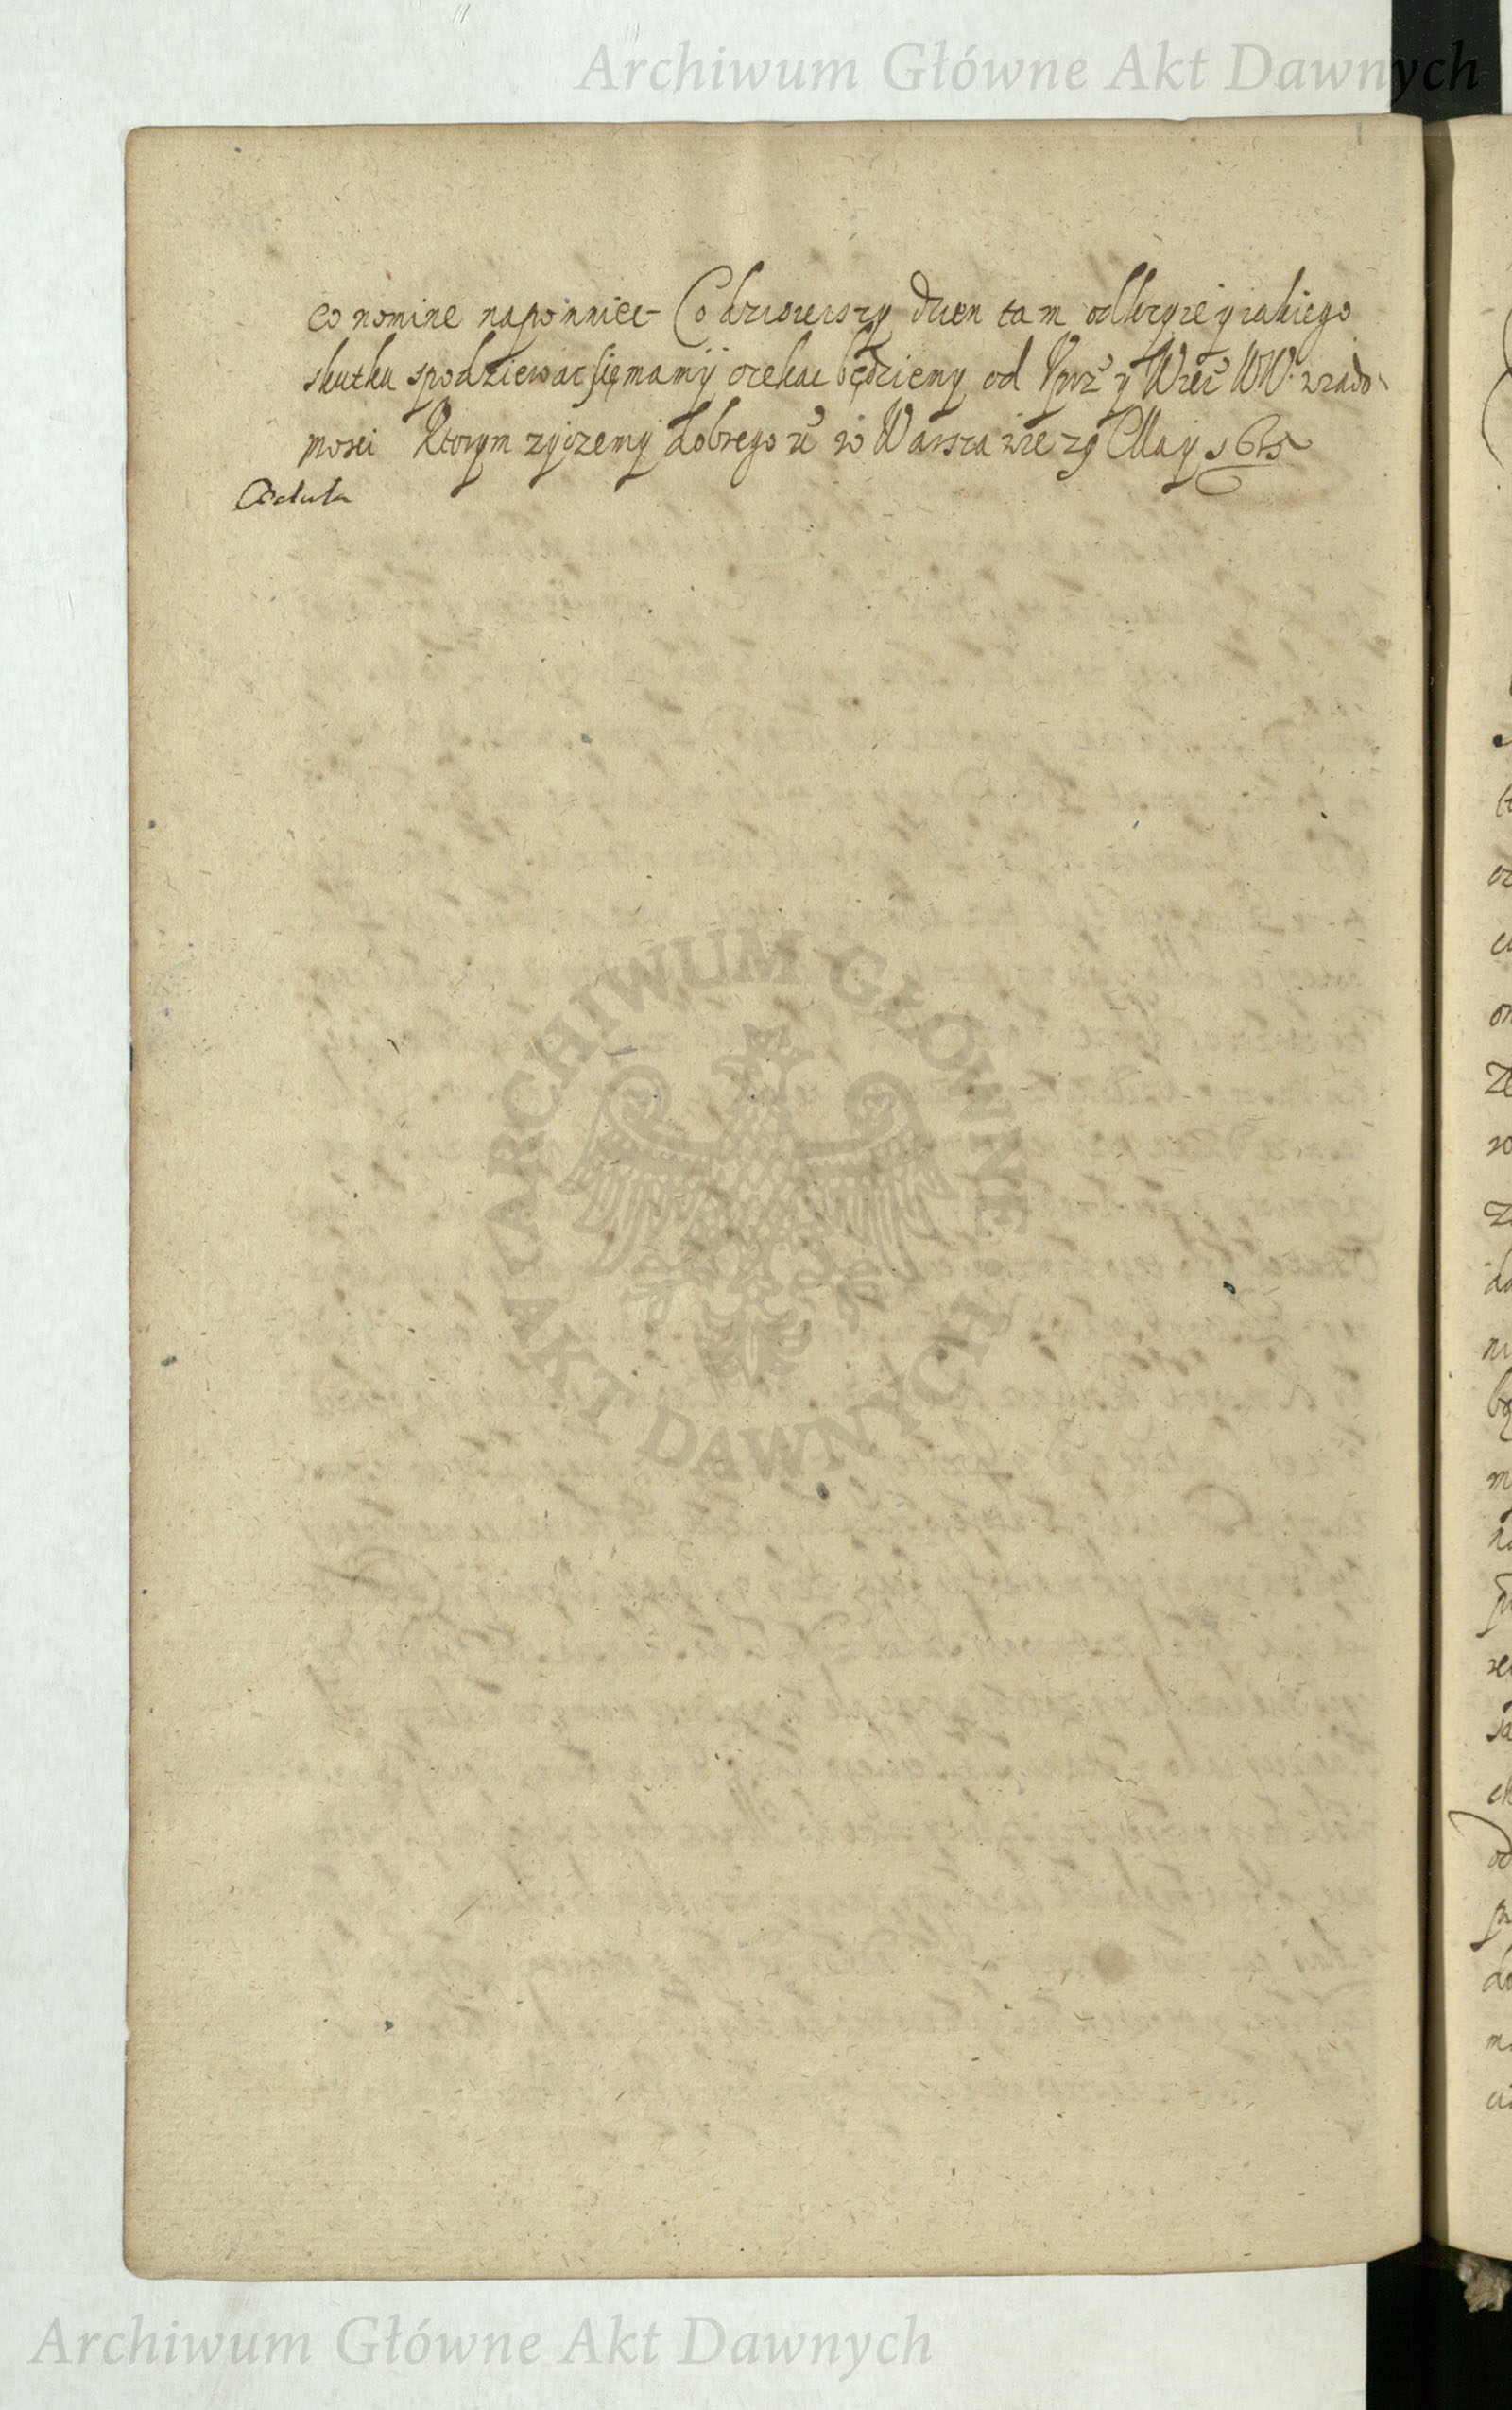 Archiwum Główne Akt Dawnych
eo nomine napomniec Co dzisieiszy dzien tam odkryie y iakiego
skutku spodziewac się mamy czekac będziemy od Uprz y Wier WW. wiado-
mosci Ktorym zyczemy dobrego zd w Warszawie 29 Maij
Cedula
ARCHIWUM GŁÓWNE AKT DAWNYCH
Archiwum Główne Akt Dawnych